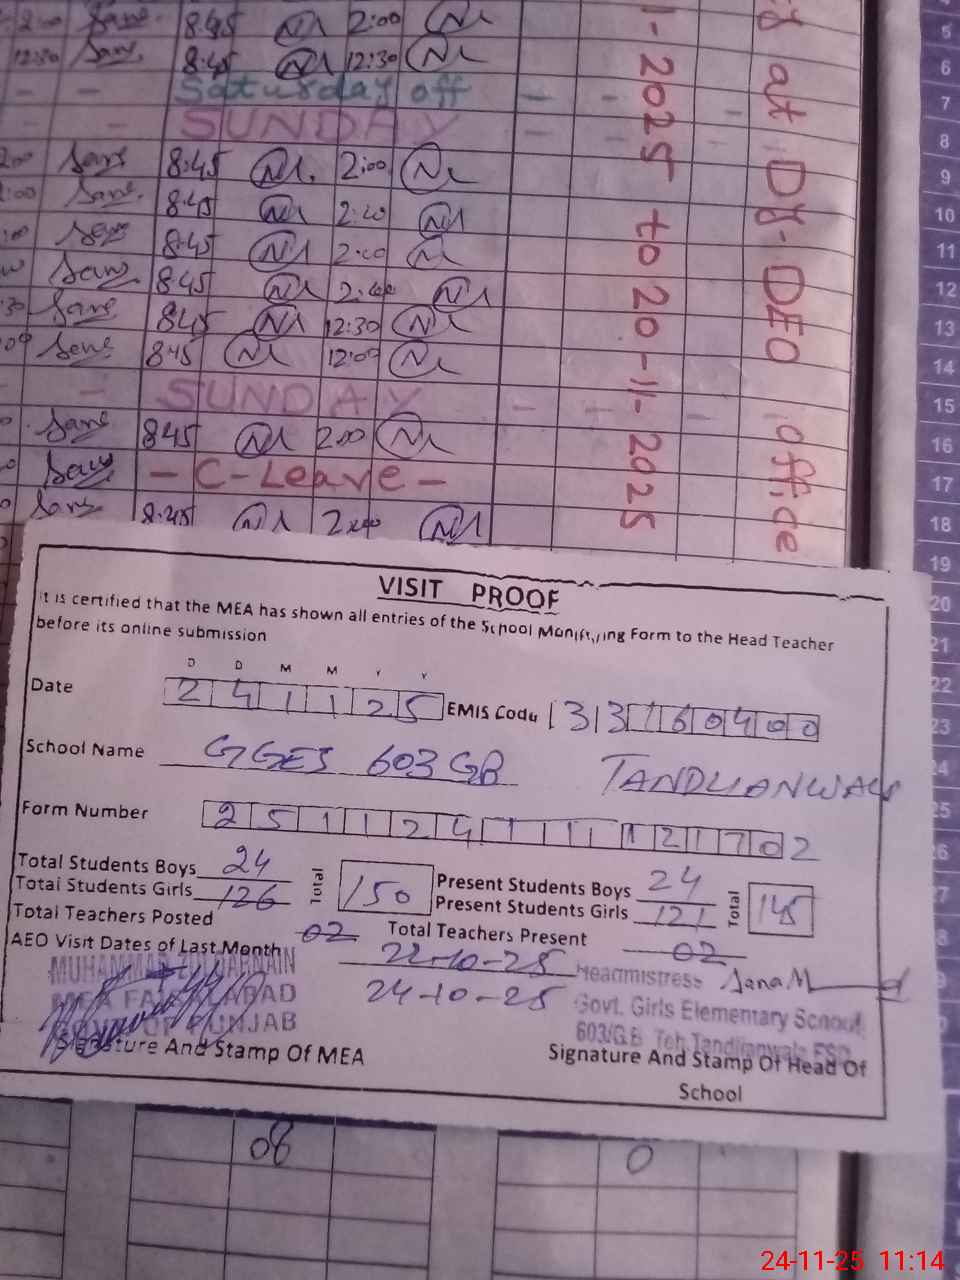 2:00 Sana 8:45 N 2:00 N
12:30 Sana 8:45 N 12:30 N
- - Saturday off - - -
- SUNDAY - - -
2:00 Sana 8:45 N 2:00 N
2:00 Sana 8:45 N 2:20 N
Sana 8:45 N 2:00 N
Sana 8:45 N 2:00 N
:30 Sana 8:45 N 12:30 N
Sana 8:45 N 12:00 N
- - SUNDAY - - -
Sana 8:45 N 2:00 N
Sana - C-Leave -
Sana 8:45 N 2:00 N
at Dy. DEO office
-2025 to 20-11-2025
5
6
7
8
9
10
11
12
13
14
15
16
17
18
19
20
21
22
23
24
25
26
VISIT PROOF
It is certified that the MEA has shown all entries of the School Monitoring Form to the Head Teacher
before its online submission
D D M M Y Y
Date 2 4 1 1 2 5 EMIS Code 3 3 1 6 0 4 0 0
School Name GGES 603 GB TANDLIANWALA
Form Number 2 5 1 1 2 4 1 1 1 1 2 1 7 0 2
Total Students Boys 24 Total 150 Present Students Boys 24 Total 145
Total Students Girls 126 Present Students Girls 121
Total Teachers Posted 02 Total Teachers Present 02
AEO Visit Dates of Last Month 22-10-25
24-10-25
MUHAMMAD ZULQARNAIN
MEA FAISALABAD
GOVT OF PUNJAB
Signature And Stamp Of MEA
Headmistress
Govt. Girls Elementary School
603/G.B Teh.Tandlianwala FSD
Signature And Stamp Of Head Of
School
08
0
24-11-25 11:14